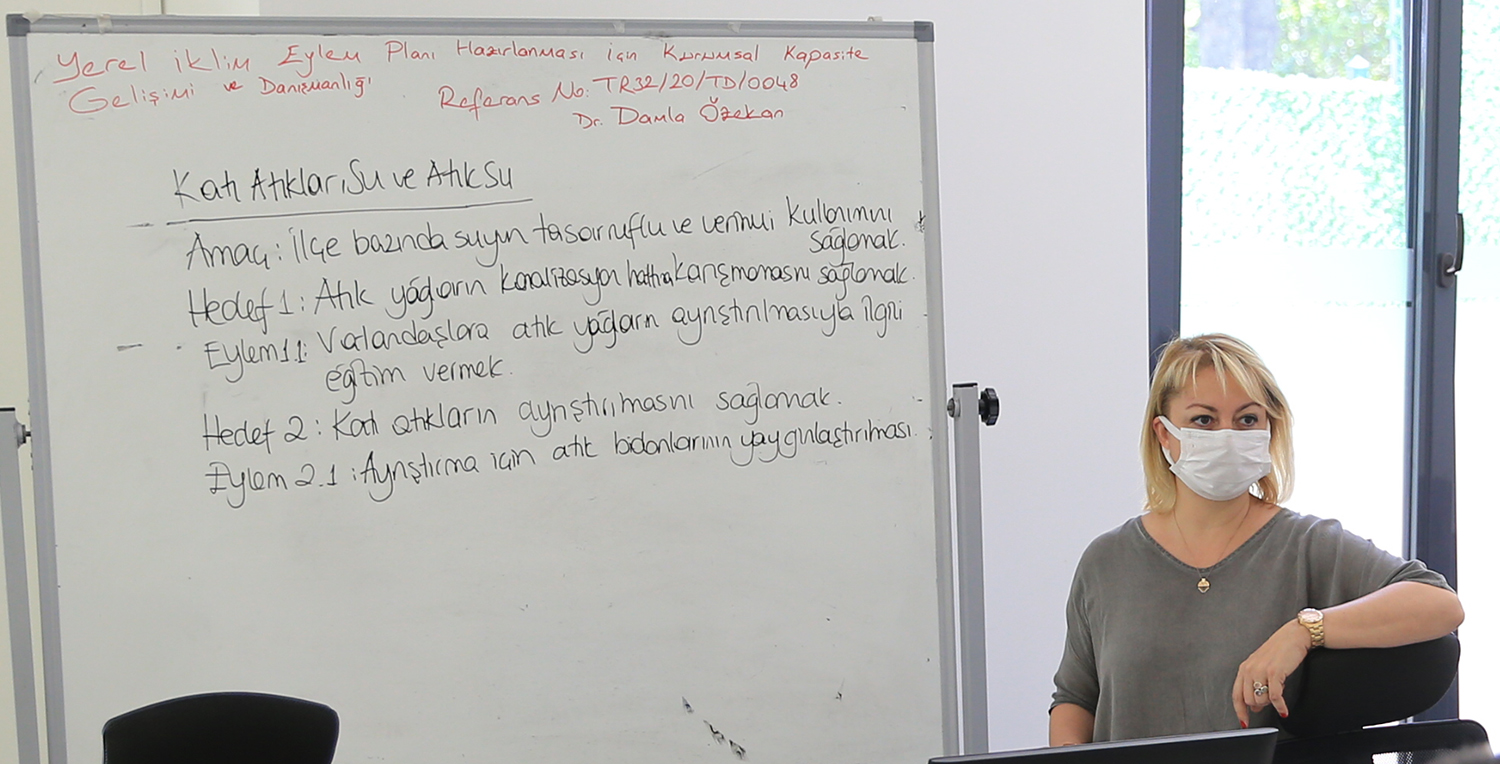 Yerel iklim Eylem Planı Hazırlanması için Kurumsal Kapasite
Gelişimi ve Danışmanlığı
Referans No: TR32/20/TD/0048
Dr. Damla Özekan
Katı Atıklar, Su ve Atık Su
Amaç: İlçe bazında suyun tasarruflu ve verimli kullanımını
sağlamak.
Hedef 1: Atık yağların kanalizasyon hattına karışmamasını sağlamak.
Eylem 1.1: Vatandaşlara atık yağların ayrıştırılmasıyla ilgili
eğitim vermek.
Hedef 2: Katı atıkların ayrıştırılmasını sağlamak.
Eylem 2.1: Ayrıştırma için atık bidonlarının yaygınlaştırılması.